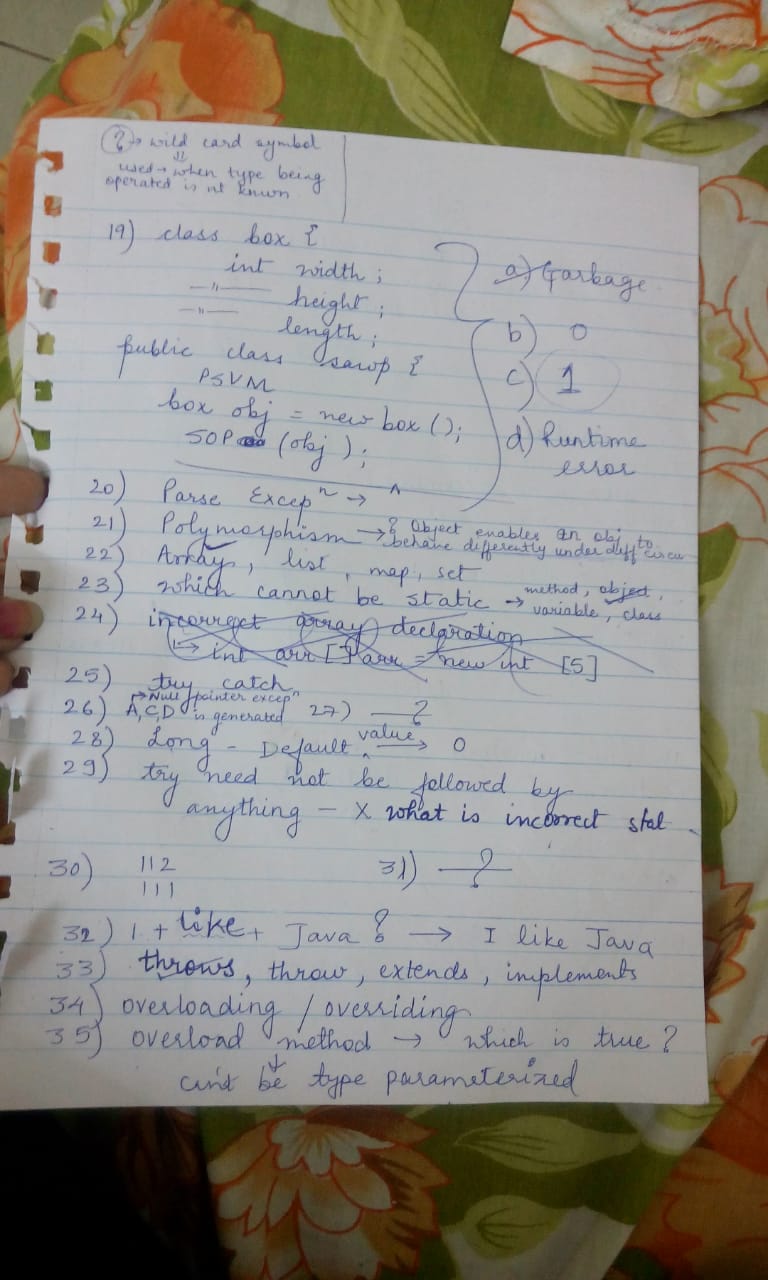 ? → wild card symbol
⇓
used → when type being
operated is nt known
19) class box {
int width ;
—"— height ;
—"— length ;
public class sawp {
PSVM
box obj = new box ();
SOP (obj );
a) Garbage
b) 0
c) 1
d) Runtime
error
20) Parse Excepⁿ → ^
21) Polymorphism → ? Object enables an obj to
behave differently under diff circu
22) Array, list, map, set
23) which cannot be static → method, object,
variable, class
24) incorrect array declaration
↳ int arr [] arr = new int [5]
25) try catch
→ Null pointer excepⁿ
26) A,C,D is generated 27) — ?
28) Long - Default value → 0
29) try need not be followed by
anything – X what is incorrect stat
30) 112
111
31) — ?
32) 1 + like + Java ? → I like Java
33) throws, throw, extends, implements
34) overloading / overriding
35) overload method → which is true ?
↓
can't be type parameterized